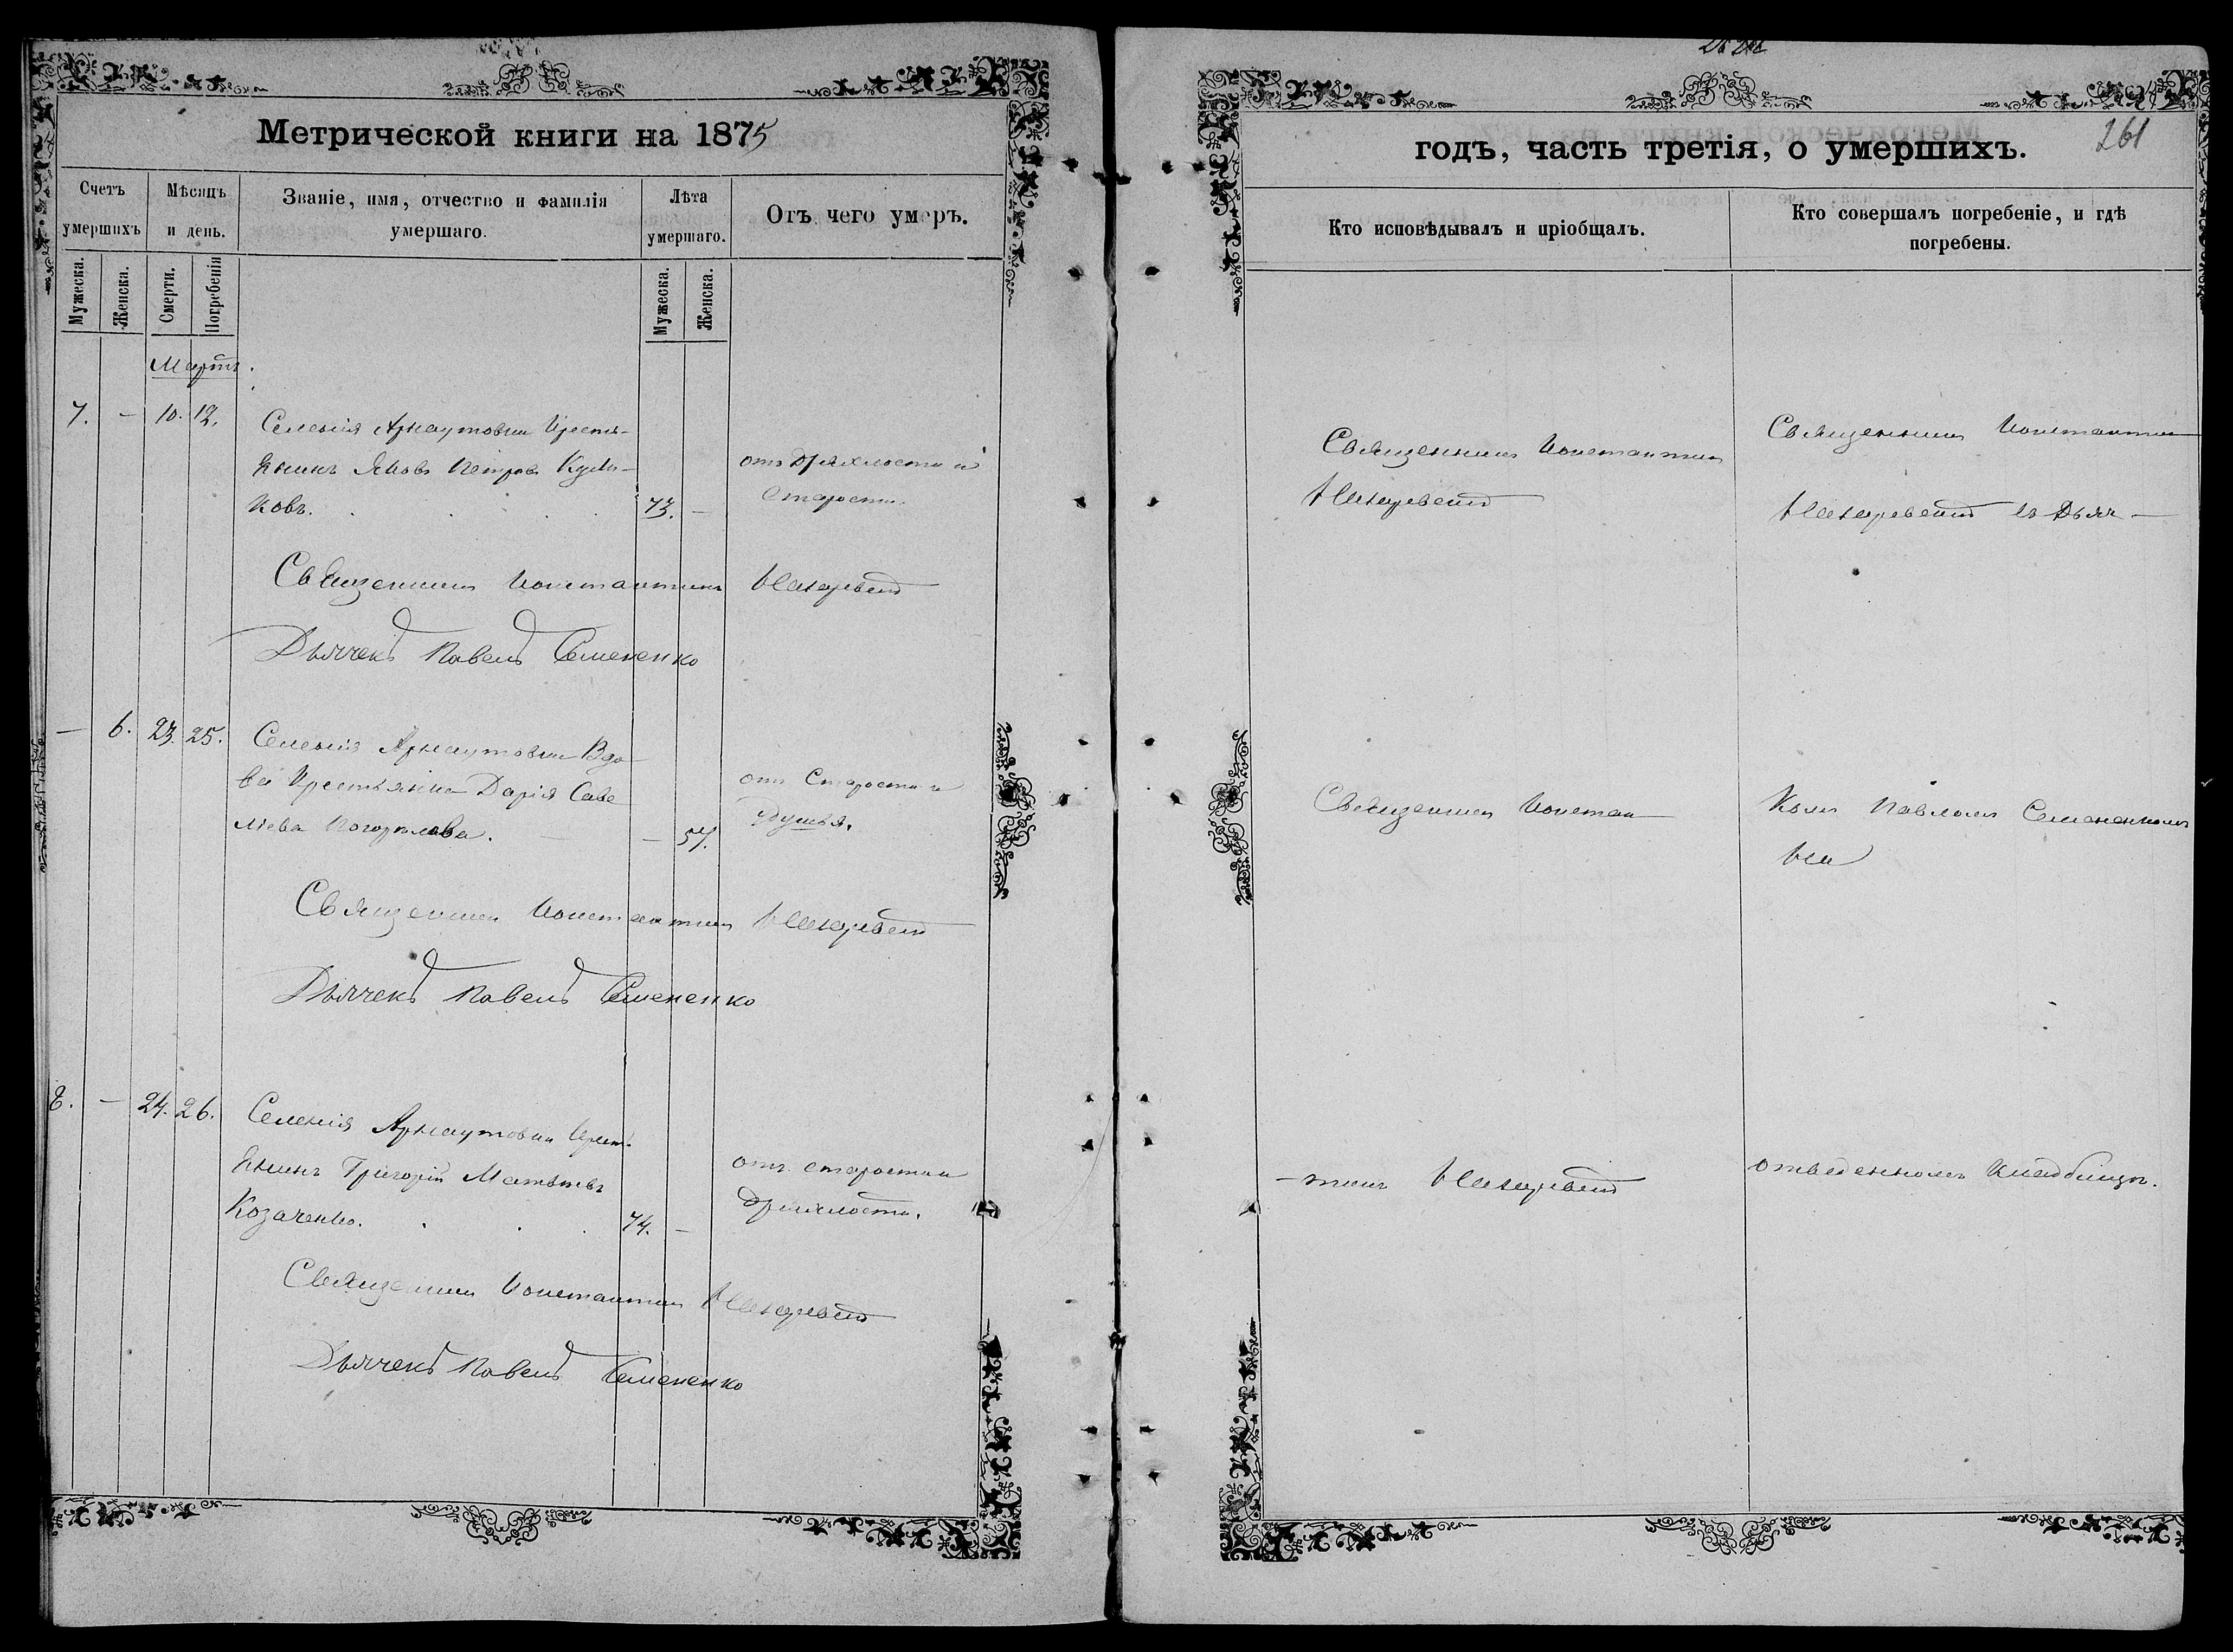 Метрической книги на 1875
Счетъ умершихъ
Мѣсяцъ и день.
Званіе, имя, отчество и фамилія умершаго.
Лѣта умершаго.
Отъ чего умеръ.
Мужеска.
Женска.
Смерти.
Погребенія
Мужеска.
Женска.
Мартъ.
7. — 10. 12.
Селенія Арнаутовки Кресть-
янинъ Яковъ Петровъ
ковъ. 73. —
отъ дряхлости и
старости.
Священникъ Константинъ
Дьячекъ Павелъ Семененко
— 6. 23. 25.
Селенія Арнаутовки Вдо-
ва Крестьянка Дарія Саве
ліева Погорѣлова. — 57.
отъ Старости и
удушья.
Священникъ Константинъ
Дьячекъ Павелъ Семененко
8. — 24. 26.
Селенія Арнаутовки Крест-
янинъ Григорій Матвѣевъ
Козаченко. 74. —
отъ старости и
дряхлости.
Священникъ Константинъ
Дьячекъ Павелъ Семененко
годъ, часть третія, о умершихъ.
261
Кто исповѣдывалъ и пріобщалъ.
Кто совершалъ погребеніе, и гдѣ погребены.
Священникъ Константинъ
Священникъ Константинъ
съ Дьяч —
Священникъ Констан —
комъ Павломъ Семененкомъ
на
— тинъ
отведенномъ кладбищѣ.